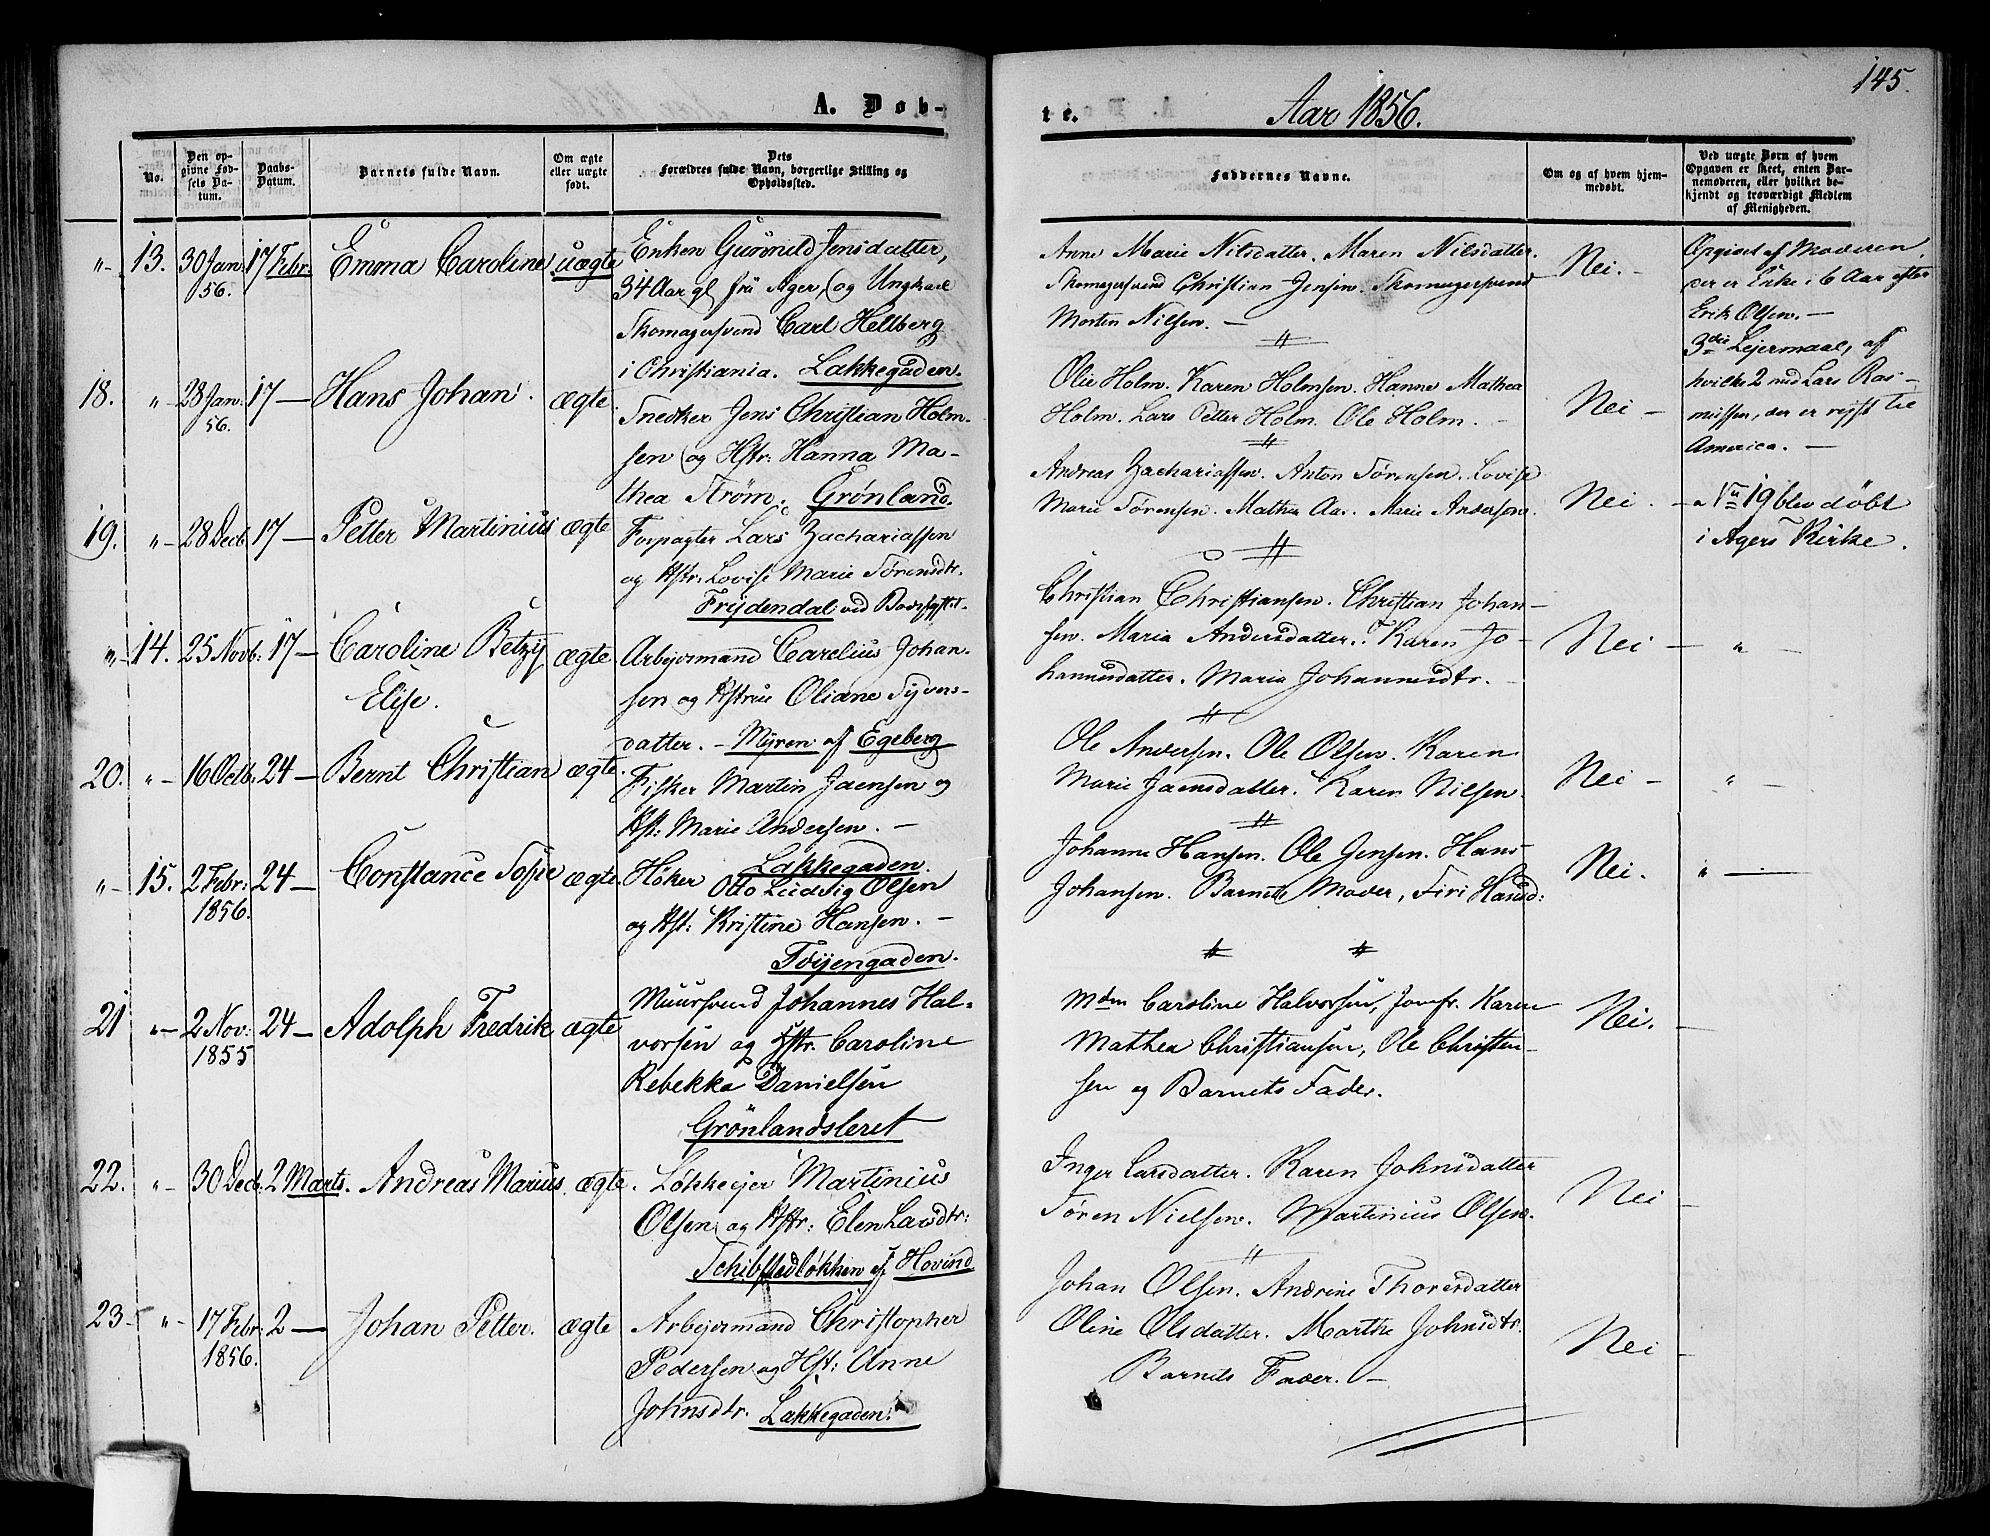 145.
A. Døb-
te.
Aar 1856.
No.
Den op-
givne Fød-
sels Da-
tum.
Daabs-
Datum.
Barnets fulde Navn.
Om ægte
eller uægte
født.
Dets
Forældres fulde Navn, borgerlige Stilling og
Opholdssted.
Faddernes Navne.
Om og af hvem hjem-
medøbt.
Ved uægte Børn af hvem
Opgaven er skeet, enten Bar-
nemoderen, eller hvilket be-
kjendt og troværdigt Medlem
af Menigheden.
"- 13. 30 Jan: 56. 17 Febr: Emma Caroline uægte
Enken Gunnild Jensdatter,
34 Aar gl fra Ager, og Ungkarl
Skomagersvend Carl Hellberg
i Christiania. Lakkegaden.
Anne Marie Nilsdatter. Maren Nilsdatter.
Skomagersvend Christian Jensen. Skomagersvend
Morten Nilsen. —
Nei. -
Opgivet af Moderen,
der er Enke i 6 Aar efter
Erik Olsen. —
3die Lejermaal, af
hvilke 2 med Lars Ras-
mussen, der er rejst til
America. —
18. "- 28 Jan: 56. 17 — Hans Johan. ægte.
Snedker Jens Christian Holm-
sen og Hstr: Hanna Ma-
thea Strøm. Grønland.
Olie Holm. Karen Holmsen. Hanne Mathea
Holm. Lars Petter Holm. Ole Holm. -
Nei -
19. "- 28 Decb. 17 — Petter Martinius ægte
Forpagter Lars Zachariassen
og Hstr: Lovise Marie Sørensdtr.
Frydendal ved
Andreas Zachariassen. Anton Sørensen. Lovise
Marie Sørensen. Mathea Aas. Marie Andersen.
Nei. -
" No 19 blev døbt
i Agers Kirke.
"- 14. 25 Novb: 17 — Caroline Betzy
Elise.
ægte
Arbejdsmand Carelius Johan-
sen og Hstrue Oliane Syvers-
datter. - Myren af Egeberg
Christian Christiansen. Christian Johan-
sen. Maria Andersdatter. Karen Jo-
hannesdatter. Maria Johannesdtr. -
Nei —
" -
20. "- 16 Octb: 24 — Bernt Christian ægte.
Fisker Martin Jaensen og
Hst: Marie Andersen. —
Lakkegaden.
Ole Andersen. Ole Olsen. Karen
Marie Jaensdatter. Karen Nilsen.
Nei —
" -
"- 15. 2 Febr: 1856. 24 — Constance Sofie ægte.
Høker Otto Ludvig Olsen
og Hst: Kristine Hansen. —
Tøyengaden.
Johanne Hansen. Ole Jensen. Hans
Johansen. Barnets Moder, Siri Hansd:
Nei.
" —
21 "- 2 Nov: 1855 24 — Adolph Fredrik ægte
Muursvend Johannes Hal-
vorsen og Hstr. Caroline
Rebekka Danielsen
Grönlandsleret
Mdm Caroline Halvorsen, Jomfr. Karen
Mathea Christiansen, Ole Christen-
sen og Barnets Fader.
Nei. -
22. "- 30 Decb: 2 Marts. Andreas Marius. ægte.
Løkkeejer Martinius
Olsen og Hstr: Elen Larsdtr:
Schibstedløkken af Hovind
Inger Larsdatter. Karen Johnsdatter
Søren Nielsen. Martinius Olsen.
Nei -
23- "- 17 Febr: 1856. 2 — Johan Petter. ægte
Arbejdsmand Christopher
Pedersen og Hst: Anne
Johnsdtr. Lakkegaden.
Johan Olsen. Andrine Thoresdatter
Oline Olsdatter. Marthe Johnsdtr.
Barnets Fader. —
Nei -